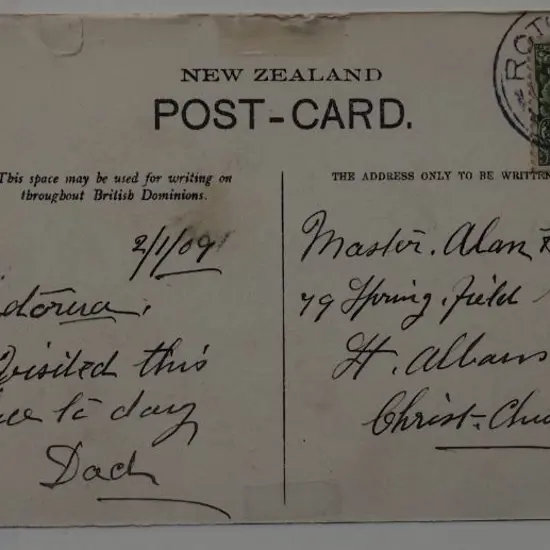 NEW ZEALAND
POST-CARD.
This space may be used for writing on
throughout British Dominions.
THE ADDRESS ONLY TO BE WRITTEN
2/1/09
Visited this
to day
Dad
Master. Alan
79 Spring, field
St. Albans
Christ-Chu
ROT